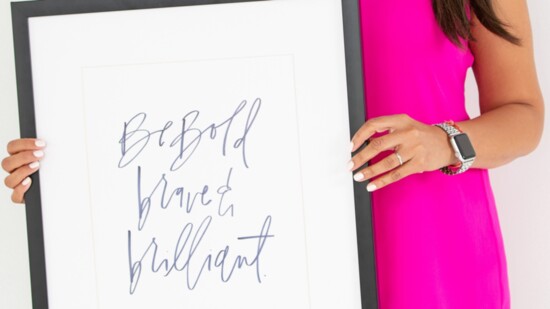 Be Bold
brave &
brilliant.